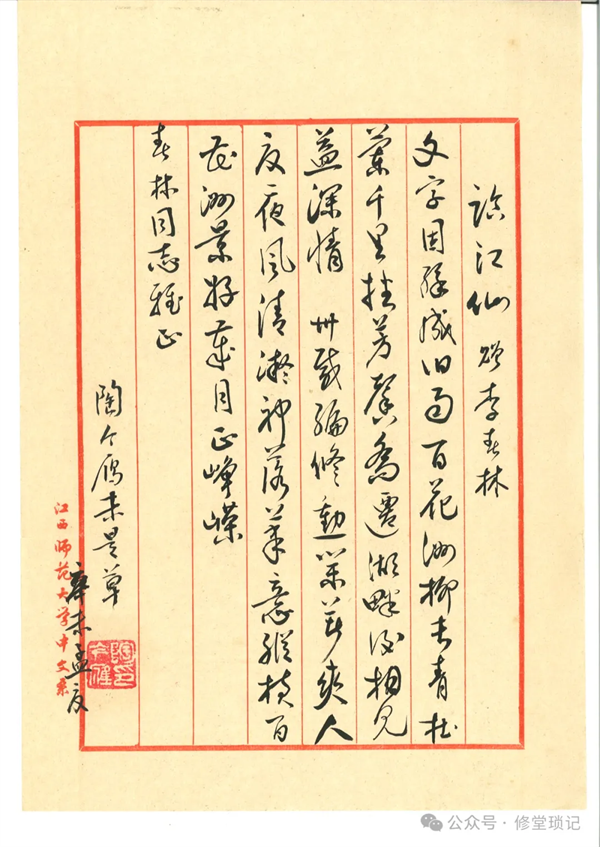 临江仙 赠李春林
文字因缘成旧雨百花洲柳长青杜
兰千里芳馨乔迁湖畔后相见
益深情 卅载编修勤爽人
夏夜风清凝神落笔意纵横百
花洲景好岁月正峥嵘
春林同志雅正
陶今雁未是草
辛未孟夏
江西师范大学中文系
公众号·修堂琐记